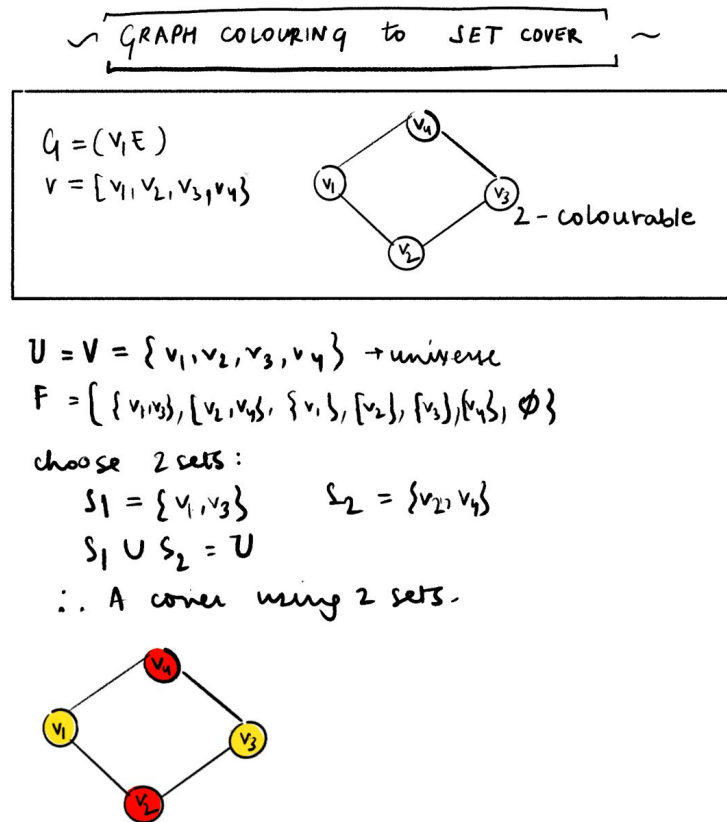 GRAPH COLOURING to SET COVER
G = (V, E)
V = {v1, v2, v3, v4}
v4
v1
v3
v2
2-colourable
U = V = {v1, v2, v3, v4} → universe
F = {{v1,v3}, {v2,v4}, {v1}, {v2}, {v3}, {v4}, ϕ}
choose 2 sets:
S1 = {v1, v3} S2 = {v2, v4}
S1 ∪ S2 = U
∴ A cover using 2 sets.
v4
v1
v3
v2